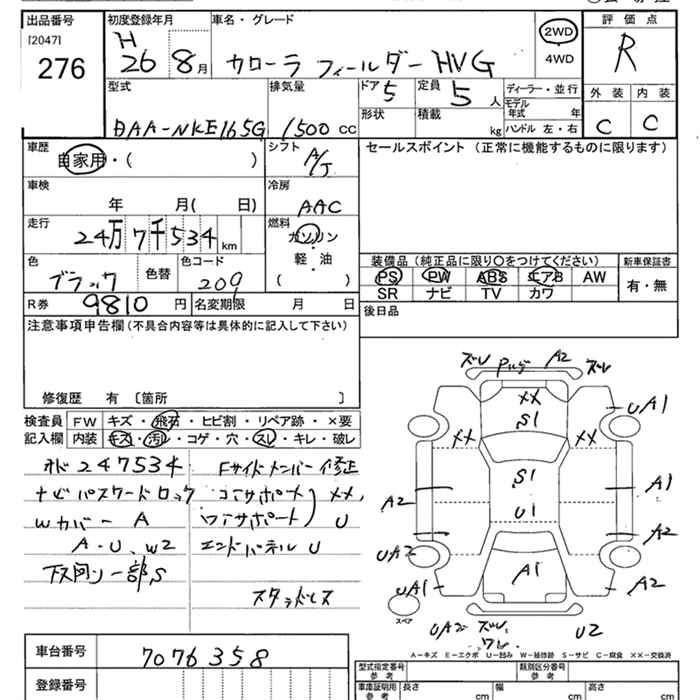 出品番号 初度登録年月 車名・グレード 評価点
[2047] H
276 26 8月 カローラ フィールダー HVG 2WD ・ 4WD R
型式 排気量 ドア 5 定員 5 人 ディーラー・並行 外装 内装
DAA-NKE165G 1500 cc 形状 積載 kg モデル年式 年 ハンドル 左・右 C C
車歴 シフト セールスポイント (正常に機能するものに限ります)
自家用・( ) A/T
車検 冷房
年 月( 日) AAC
走行 燃料
24万7千534 km ガソリン・軽・油 ( )
色 色コード 装備品 (純正品に限り○をつけてください) 新車保証書
ブラック 色替 209 PS PW ABS エアB AW 有・無
SR ナビ TV カワ
R券 9810 円 名変期限 月 日 後日品
注意事項申告欄 (不具合内容等は具体的に記入して下さい)
修復歴 有 〔箇所 〕
検査員 FW キズ・飛石・ヒビ割・リペア跡・×要
記入欄 内装 キズ・汚レ・コゲ・穴・スレ・キレ・破レ
247534 Fサイドメンバー修正
ナビパスワードロック コアサポート XX
Wカバー A ロアサポート U
A・U、W2 エンドパネル U
下廻り一部S
スタッドレス
ズレ A2 ズレ
XX UA1
S1
XX XX
S1
A2 U1 A1
A2
UA2
A1 A2
UA1
スペア
UA2 ズレ U2
ワレ
A-キズ E-エクボ U-凹み W-補修跡 S-サビ C-腐食 XX-交換済
車台番号 7076358
型式指定番号 参考 類別区分番号 参考
登録番号 車庫証明用 参考 長さ cm 幅 cm 高さ cm